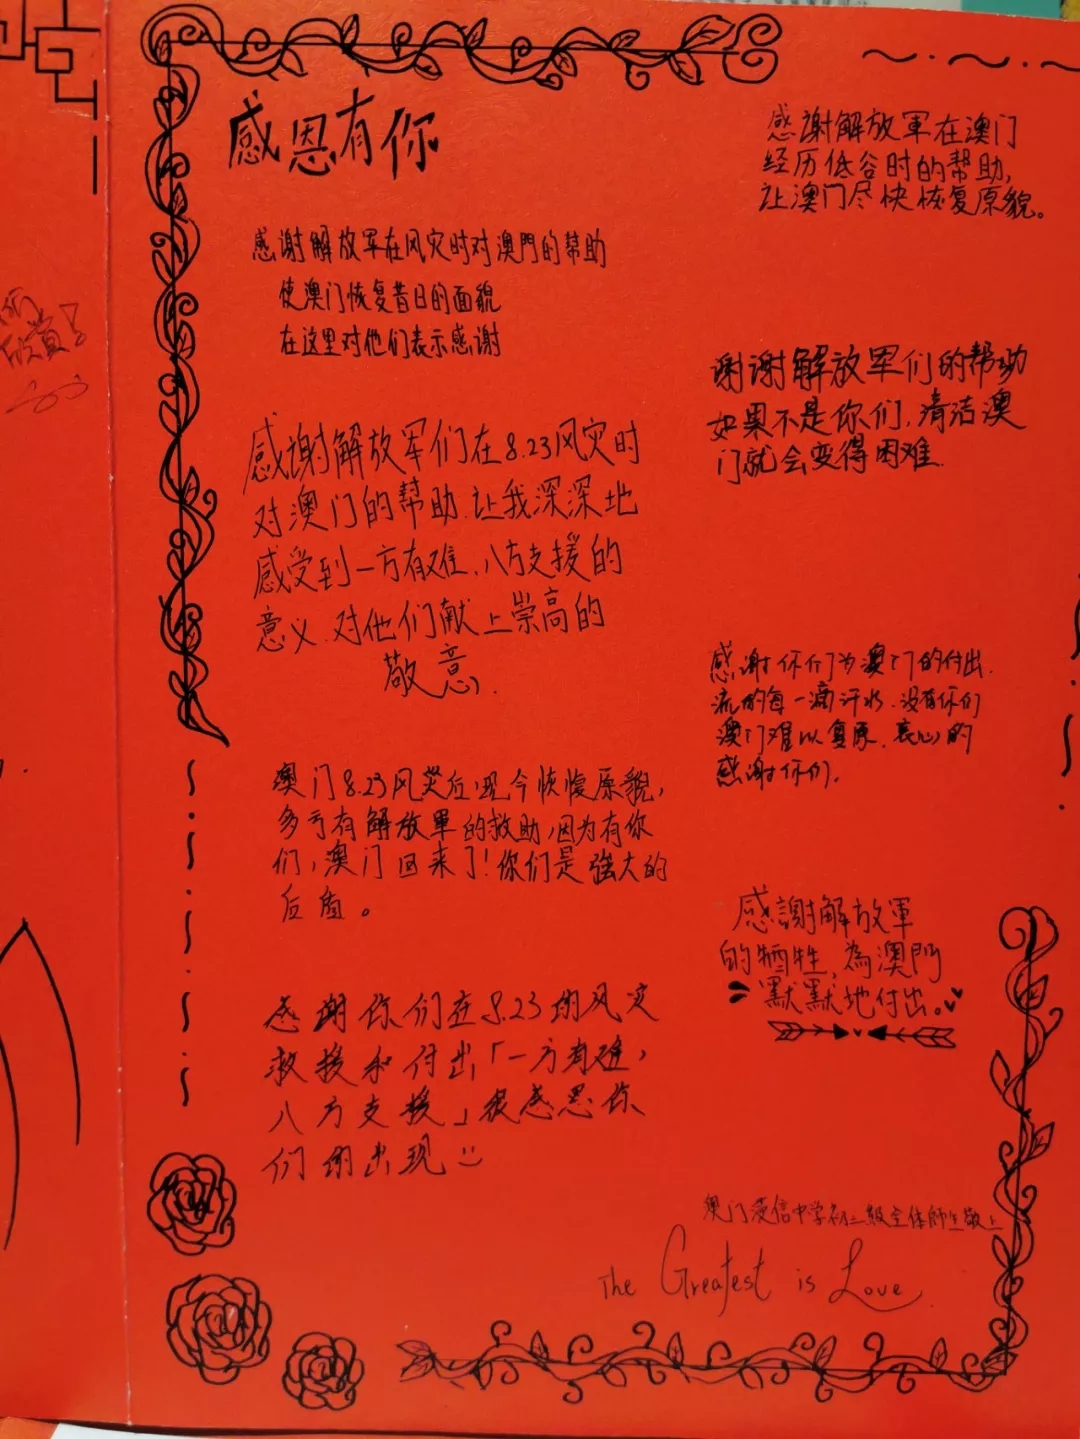 欣賞!
感恩有你
感谢解放军在风灾时对澳門的帮助
使澳门恢复昔日的面貌
在这里对他们表示感谢
感谢解放军们在8.23风灾时
对澳门的帮助.让我深深地
感受到一方有难.八方支援的
意义.对他们献上崇高的
敬意.
澳门8.23风灾后,现今恢復原貌,
多亏有解放軍的救助,因为有你
们,澳门回来了!你们是強大的
后盾。
感谢你们在8.23的风灾
救援和付出「一方有难,
八方支援」很感恩你
们的出现
感谢解放軍在澳门
经历低谷时的帮助,
让澳门尽快恢复原貌。
谢谢解放军们的帮助
如果不是你们,清洁澳
门就会变得困难.
感谢你们为澳门的付出.
流的每一滴汗水.没有你们
澳门难以复原.衷心的
感谢你们.
感謝解放軍
的牺牲,為澳門
默默地付出。
澳门浸信中学初二級全体師生敬上
The Greatest is Love